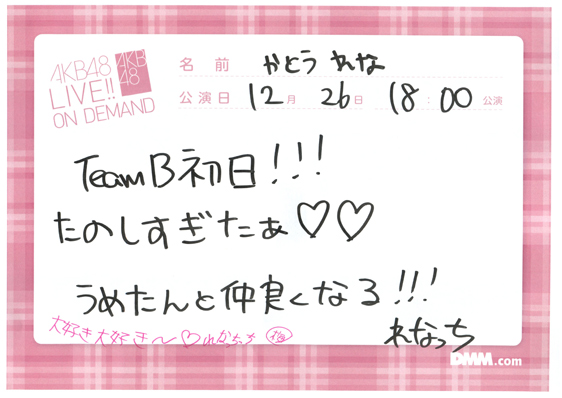 AKB48
LIVE!!
ON DEMAND
AKB
48
名前 かとう れな
公演日 12月 26日 18:00 公演
TeamB初日!!!
たのしすぎたぁ♡♡
うめたんと仲良くなる!!!
大好き大好き〜♡れなっち 梅
れなっち
DMM.com